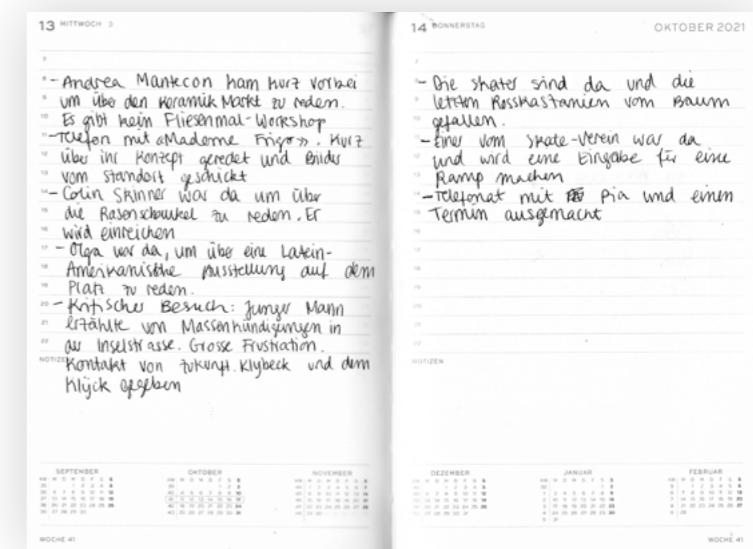 13 MITTWOCH
- Andrea Mantecon kam kurz vorbei
um über den Keramik Markt zu reden.
Es gibt kein Fliesenmal-Workshop
- Telefon mit «Madame Frigo». Kurz
über ihr Konzept geredet und Bilder
vom Standort geschickt
- Colin Skinner war da um über
die Rasenschaukel zu reden. Er
wird einreichen
- Olga war da, um über eine Latein-
Amerikanische Ausstellung auf dem
Platz zu reden.
- Kritischer Besuch: Junger Mann
erzählte von Massenkündigungen in
der Inselstrasse. Grosse Frustration.
NOTIZEN
Kontakt von Zukunft.Klybeck und dem
Klÿck gegeben
SEPTEMBER OKTOBER NOVEMBER
WOCHE 41
14 DONNERSTAG OKTOBER 2021
- Die Skater sind da und die
letzten Rosskastanien vom Baum
gefallen.
- Einer vom Skate-Verein war da
und wird eine Eingabe für eine
Ramp machen
- Telefonat mit Pia und einen
Termin ausgemacht
NOTIZEN
DEZEMBER JANUAR FEBRUAR
WOCHE 41